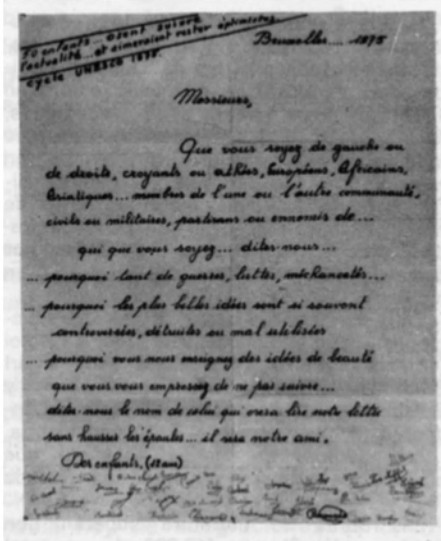 50 enfants... osent suivre
l'actualité... et aimeraient rester optimistes
cycle UNESCO 1975.
Bruxelles.... 1975
Messieurs,
Que vous soyez de gauche ou
de droite, croyants ou athées, Européens, Africains,
Asiatiques... membres de l'une ou l'autre communauté,
civils ou militaires, partisans ou ennemis de...
qui que vous soyez... dites-nous...
... pourquoi tant de guerres, luttes, méchancetés...
... pourquoi les plus belles idées sont si souvent
controversées, détruites ou mal utilisées
... pourquoi vous nous enseignez des idées de beauté
que vous vous empressez de ne pas suivre...
dites-nous le nom de celui qui osera lire notre lettre
sans hausser les épaules... il sera notre ami.
Des enfants, (12 ans)